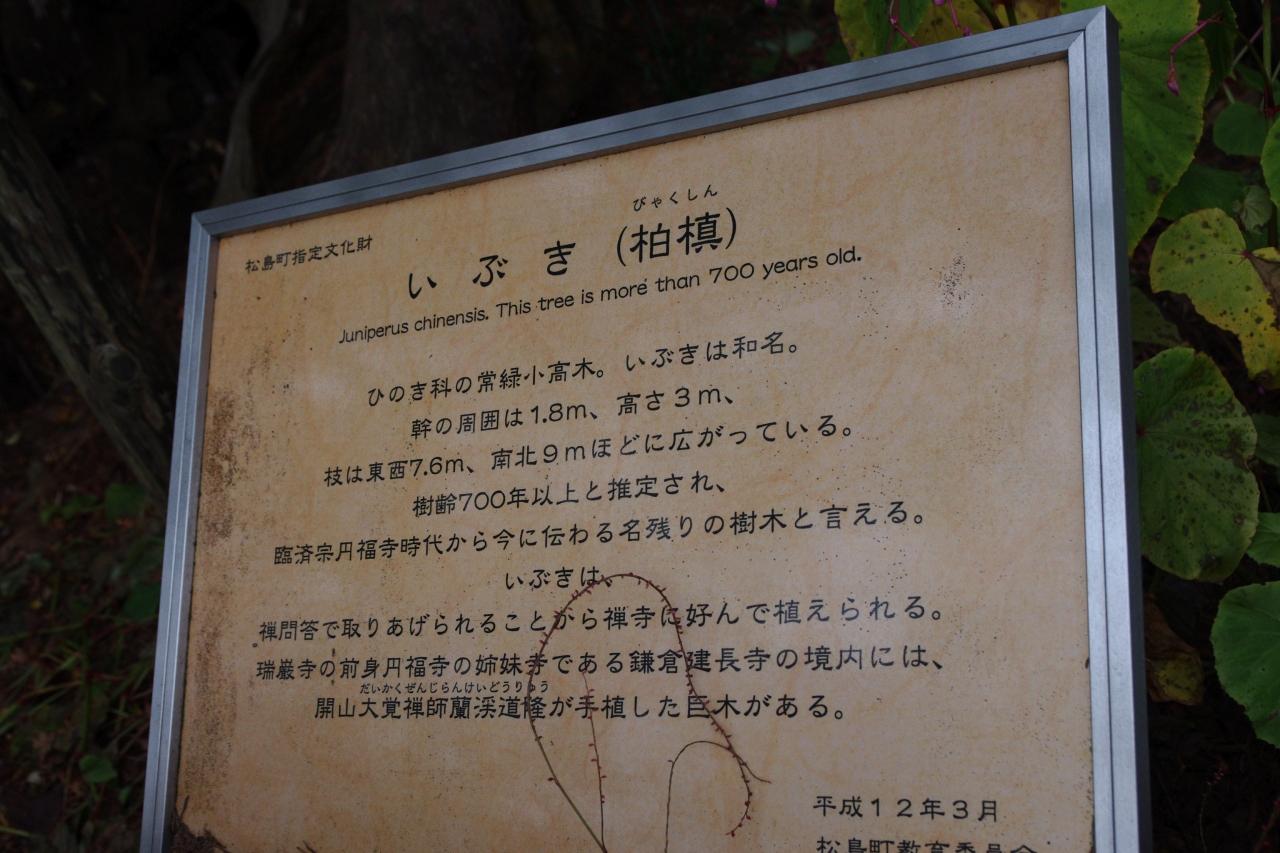 松島町指定文化財
びゃくしん
いぶき(柏槙)
Juniperus chinensis. This tree is more than 700 years old.
ひのき科の常緑小高木。いぶきは和名。
幹の周囲は1.8m、高さ3m、
枝は東西7.6m、南北9mほどに広がっている。
樹齢700年以上と推定され、
臨済宗円福寺時代から今に伝わる名残りの樹木と言える。
いぶきは、
禅問答で取りあげられることから禅寺に好んで植えられる。
瑞巌寺の前身円福寺の姉妹寺である鎌倉建長寺の境内には、
だいかくぜんじらんけいどうりゅう
開山大覚禅師蘭渓道隆が手植した巨木がある。
平成12年3月
松島町教育委員会